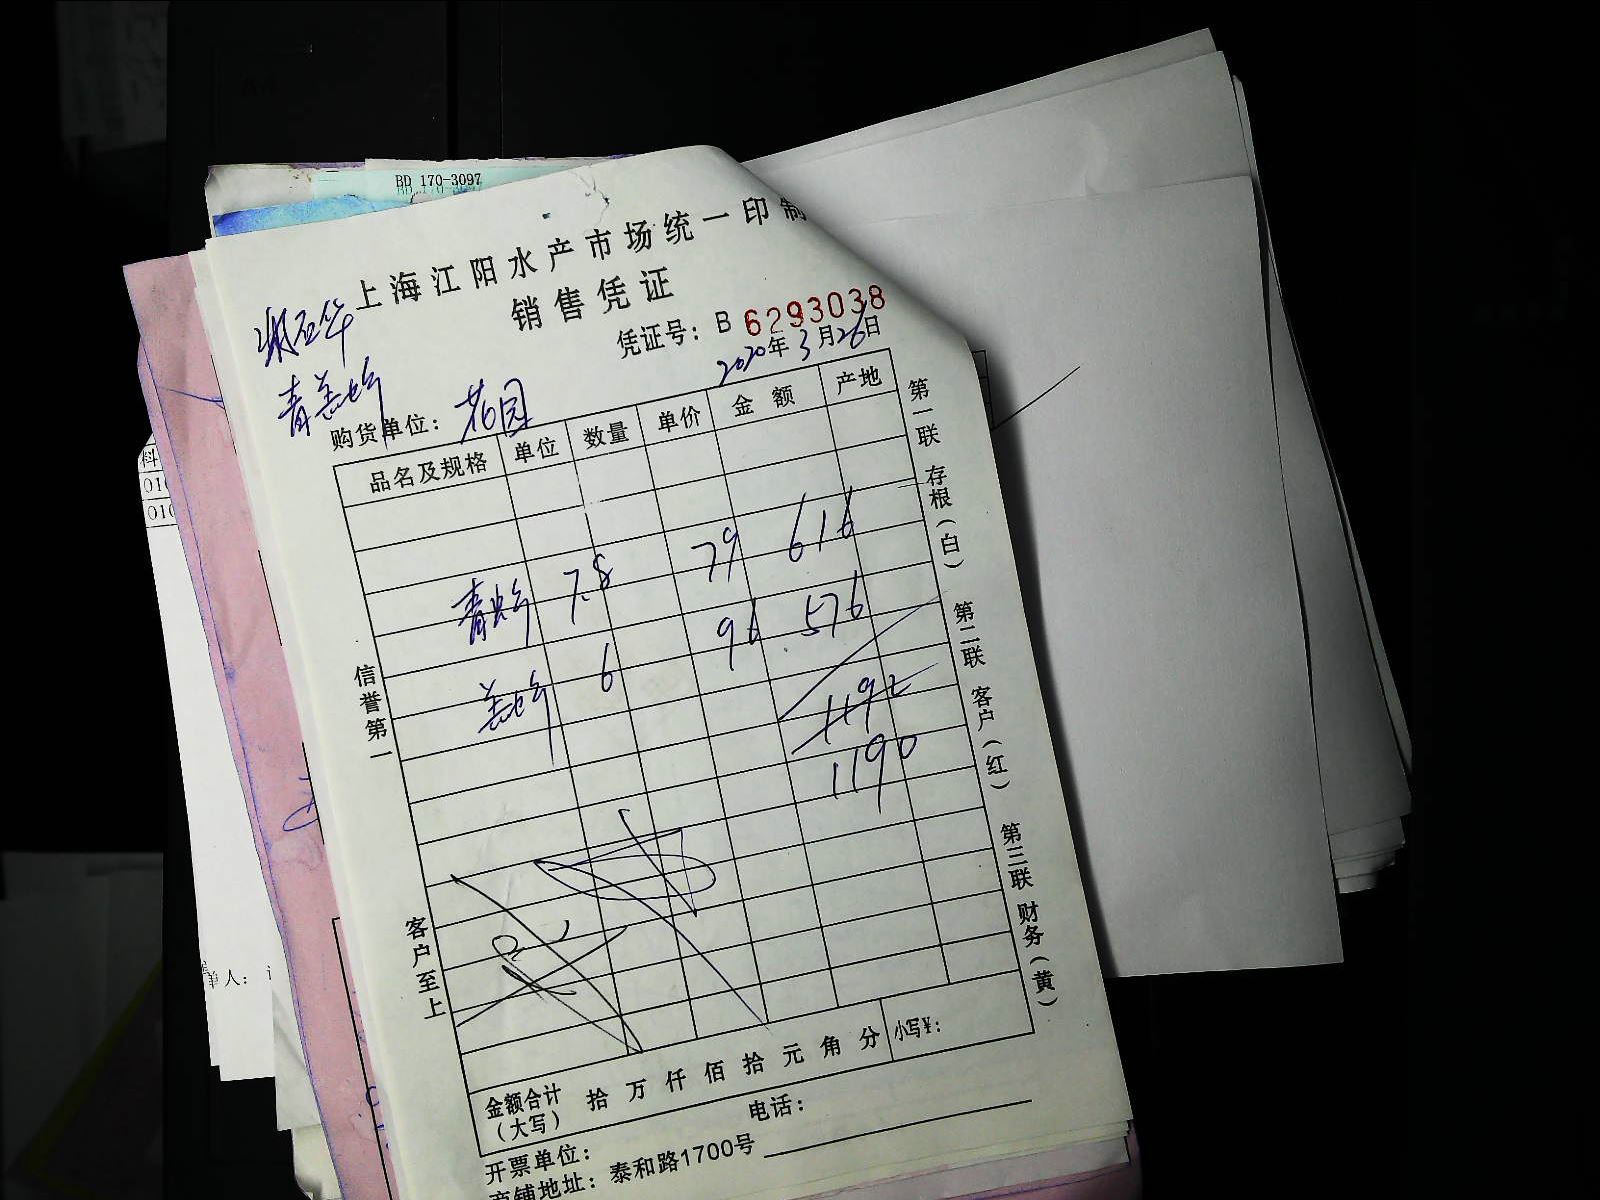 BD 170-3097
上海江阳水产市场统一印制
销售凭证
凭证号：B 6293038
2020年3月26日
购货单位：花园
品名及规格 单位 数量 单价 金额 产地
青虾 7.8 79 616
盖虾 6 96 576
1192
1190
信誉第一
客户至上
第一联 存根（白）
第二联 客户（红）
第三联 财务（黄）
金额合计（大写） 拾 万 仟 佰 拾 元 角 分 小写¥：
开票单位： 电话：
商铺地址：泰和路1700号
料
010
010
单人：